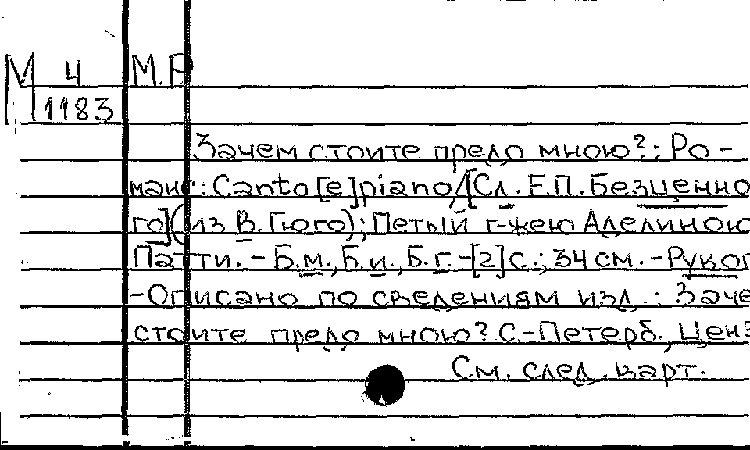 М 4 М.Р
1183
Зачем стоите предо мною?: Ро-
манс: Canto [e] piano / [Сл. Е.П. Безценно
го] (из В. Гюго); Петый г-жею Аделиною
Патти. - Б.м., Б.и., Б.г. - [2] с.; 34 см. - Рукоп
- Описано по сведениям изд.: Заче
стоите предо мною? С.-Петерб., Ценз
См. след. карт.